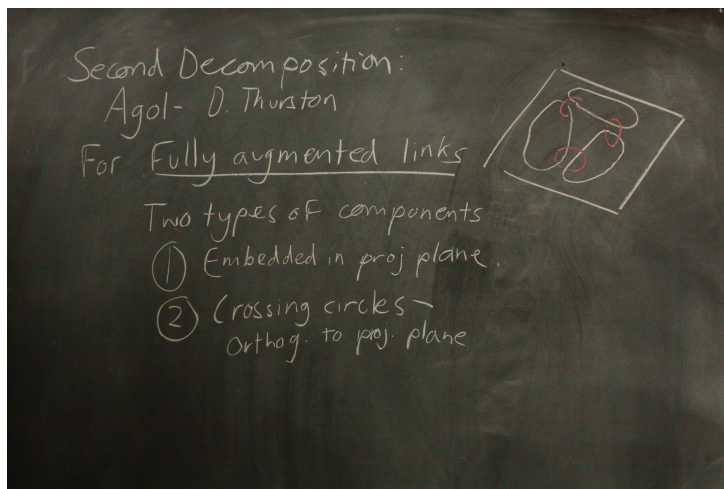 Second Decomposition:
Agol- D. Thurston
For Fully augmented links
Two types of components
① Embedded in proj plane.
② Crossing circles –
orthog. to proj. plane